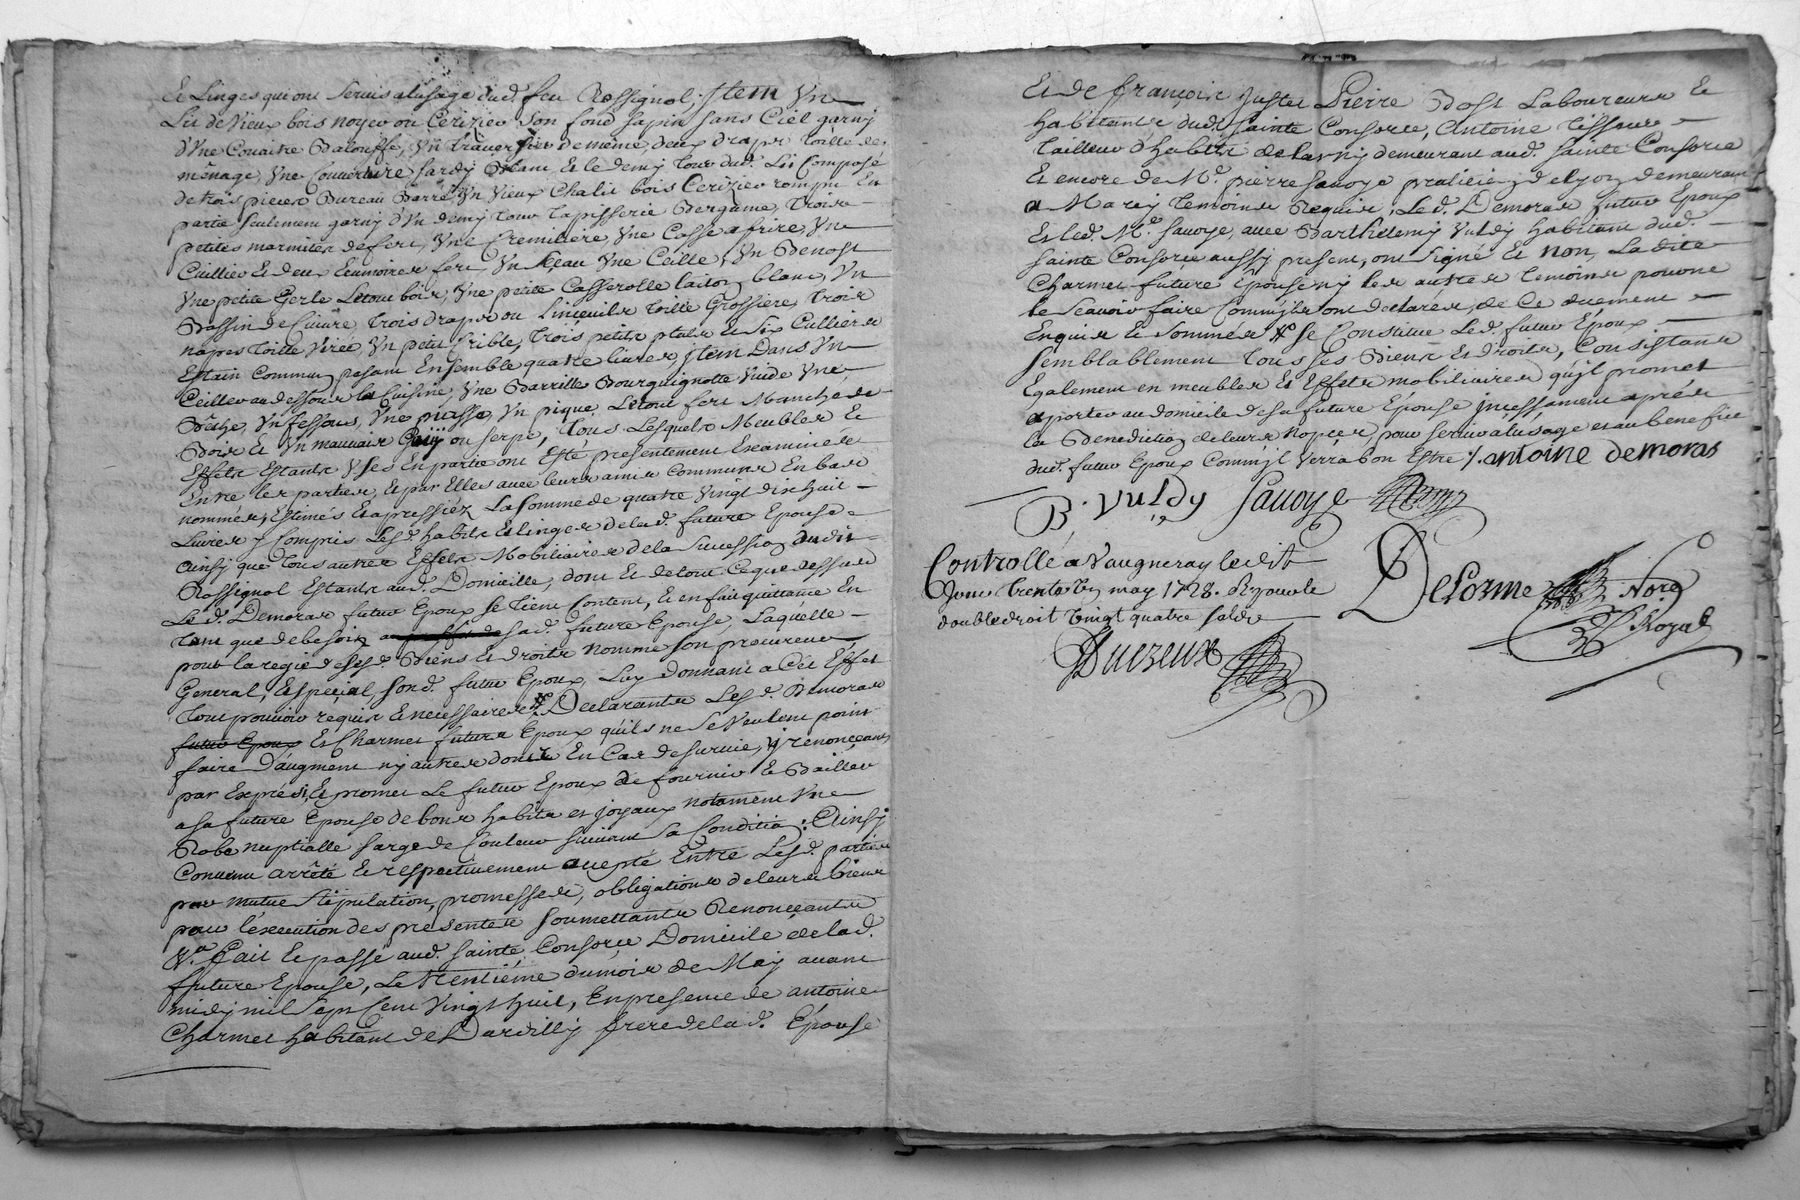 Et Linges qui ont servis a lusage dud. feu Rossignol; Jtem Vn
Lit de Vieux bois noyer ou Cerizier son fond sapin sans Ciel garny
d'Vne Couaitre Balouffe, Vn traversier de meme deux draps toille de
ménage, Vne Couverture sardy blanc Et le demy tour dud. Lit Composé
de trois pieces Bureau Barré, Vn Vieux Chalit bois Cerizier rompu En
partie seulement garny d'Vn demy tour tapisserie Bergame, trois
petites marmites de fert, Vne Cremiliere, Vne Casse a frire, Vne
Cuillier Et deux Ecumoires fert Vn seau Vne Ceille, Vn Benost
Vne petite Gerle Le tout bois, Vne petite Casserolle laiton blanc, Vn
Bassin de Cuivre, trois draps ou linceuils toille Grossiere, trois
napes toille Virée, Vn petit Crible, trois petits plats Et six Culliers
Estain Commun pesant Ensemble quatre livres Jtem Dans Vn
Cellier au dessous la Cuisine, Vne Barrille Bourguignotte Vuide Vne
Bêche, Vn fessour, Vne piasse, Vn pique, Le tout fert Manche de
Bois Et Vn mauvais Goiy ou serpe, tous Lesquels Meubles Et
Effets Estants Vsés En partie ont Esté presentement Examinés
Entre les parties, Et par Elles avec leurs amis communs En bas
nommés, Estimés Et apressiéz La somme de quatre Vingt dix huit
Livres y Compris Lesd. habits Et linges de lad. future Epouse
ainsy que tous autres Effets Mobiliaires de la succession dudit
Rossignol Estants aud. Domicille, dont Et de tout Ce que dessus
Le d. Demoras futur Epoux se tient Content, Et en fait quittance En
tant que de besoin a sad. future Epouse, Laquelle
pour la regie de ses d. Biens Et droits nomme son procureur
General, Et special, son d. futur Epoux, Luy donnant a Cet Effet
tout pouvoir requis Et necessaire # Declarants Les d. Demoras
futur Epoux Et Charmet future Epoux qu'ils ne se Veulent point
faire d'augment ny autres dons En Cas de survie, y renonçants
par Exprès, Et promet Le futur Epoux de fournir Et Bailler
a sa future Epouse de bons habits et joyaux notament Vne
Robe nuptialle sarge de Couleur suivant sa Condition; Ainsy
Convenu arrêté Et respectivement accepté Entre Lesd. parties
par mutue stipulation, promesses, obligations de leurs biens
pour l'execution des presentes soumettants Renonçants
&.a Fait Et passé aud. Sainte Consorce Domicile de lad.
future Epouse, Le trentiéme du mois de May avant
midy mil sept Cent Vingt huit, En presence de antoine
Charmet habitant de Dardilly frere de lad. Epouse
Et de françois Juster Pierre Bost Laboureurs Et
habitants dud. Sainte Consorce, Antoine Tisseur
tailleur d'habits de Larny demeurant aud. Sainte Consorce
Et encore de M.e pierre Savoye praticien de Lyon demeurant
a Marcy temoins Requis, Le d. Demoras futur Epoux
Et led. M.e Savoye, avec Barthelemy Vuldy habitant dud.
Sainte Consorce aussy present, ont signé Et non, La dite
Charmet future Epouse ny les autres temoins pour ne
le Scavoir faire Comm'ils ont declarés, de Ce duement
Enquis Et sommés # se Constitue Led. futur Epoux
semblablement tous ses Biens Et droits, Consistant
Egalement en meubles Et Effets mobiliaires qu'il promet
aporter au domicile de sa future Epouse incessament après
la Benediction de leurs nopces pour servir a lusage et au benefice
dud. futur Epoux Comm'jl Verra bon Estre /. antoine demoras
B. Vuldy Savoye
Controllé a Vaugneray le dit
Jour trente Un may 1728. Reçu le
double droit Vingt quatre sols
Delorme Nore
Royal
Duezeux